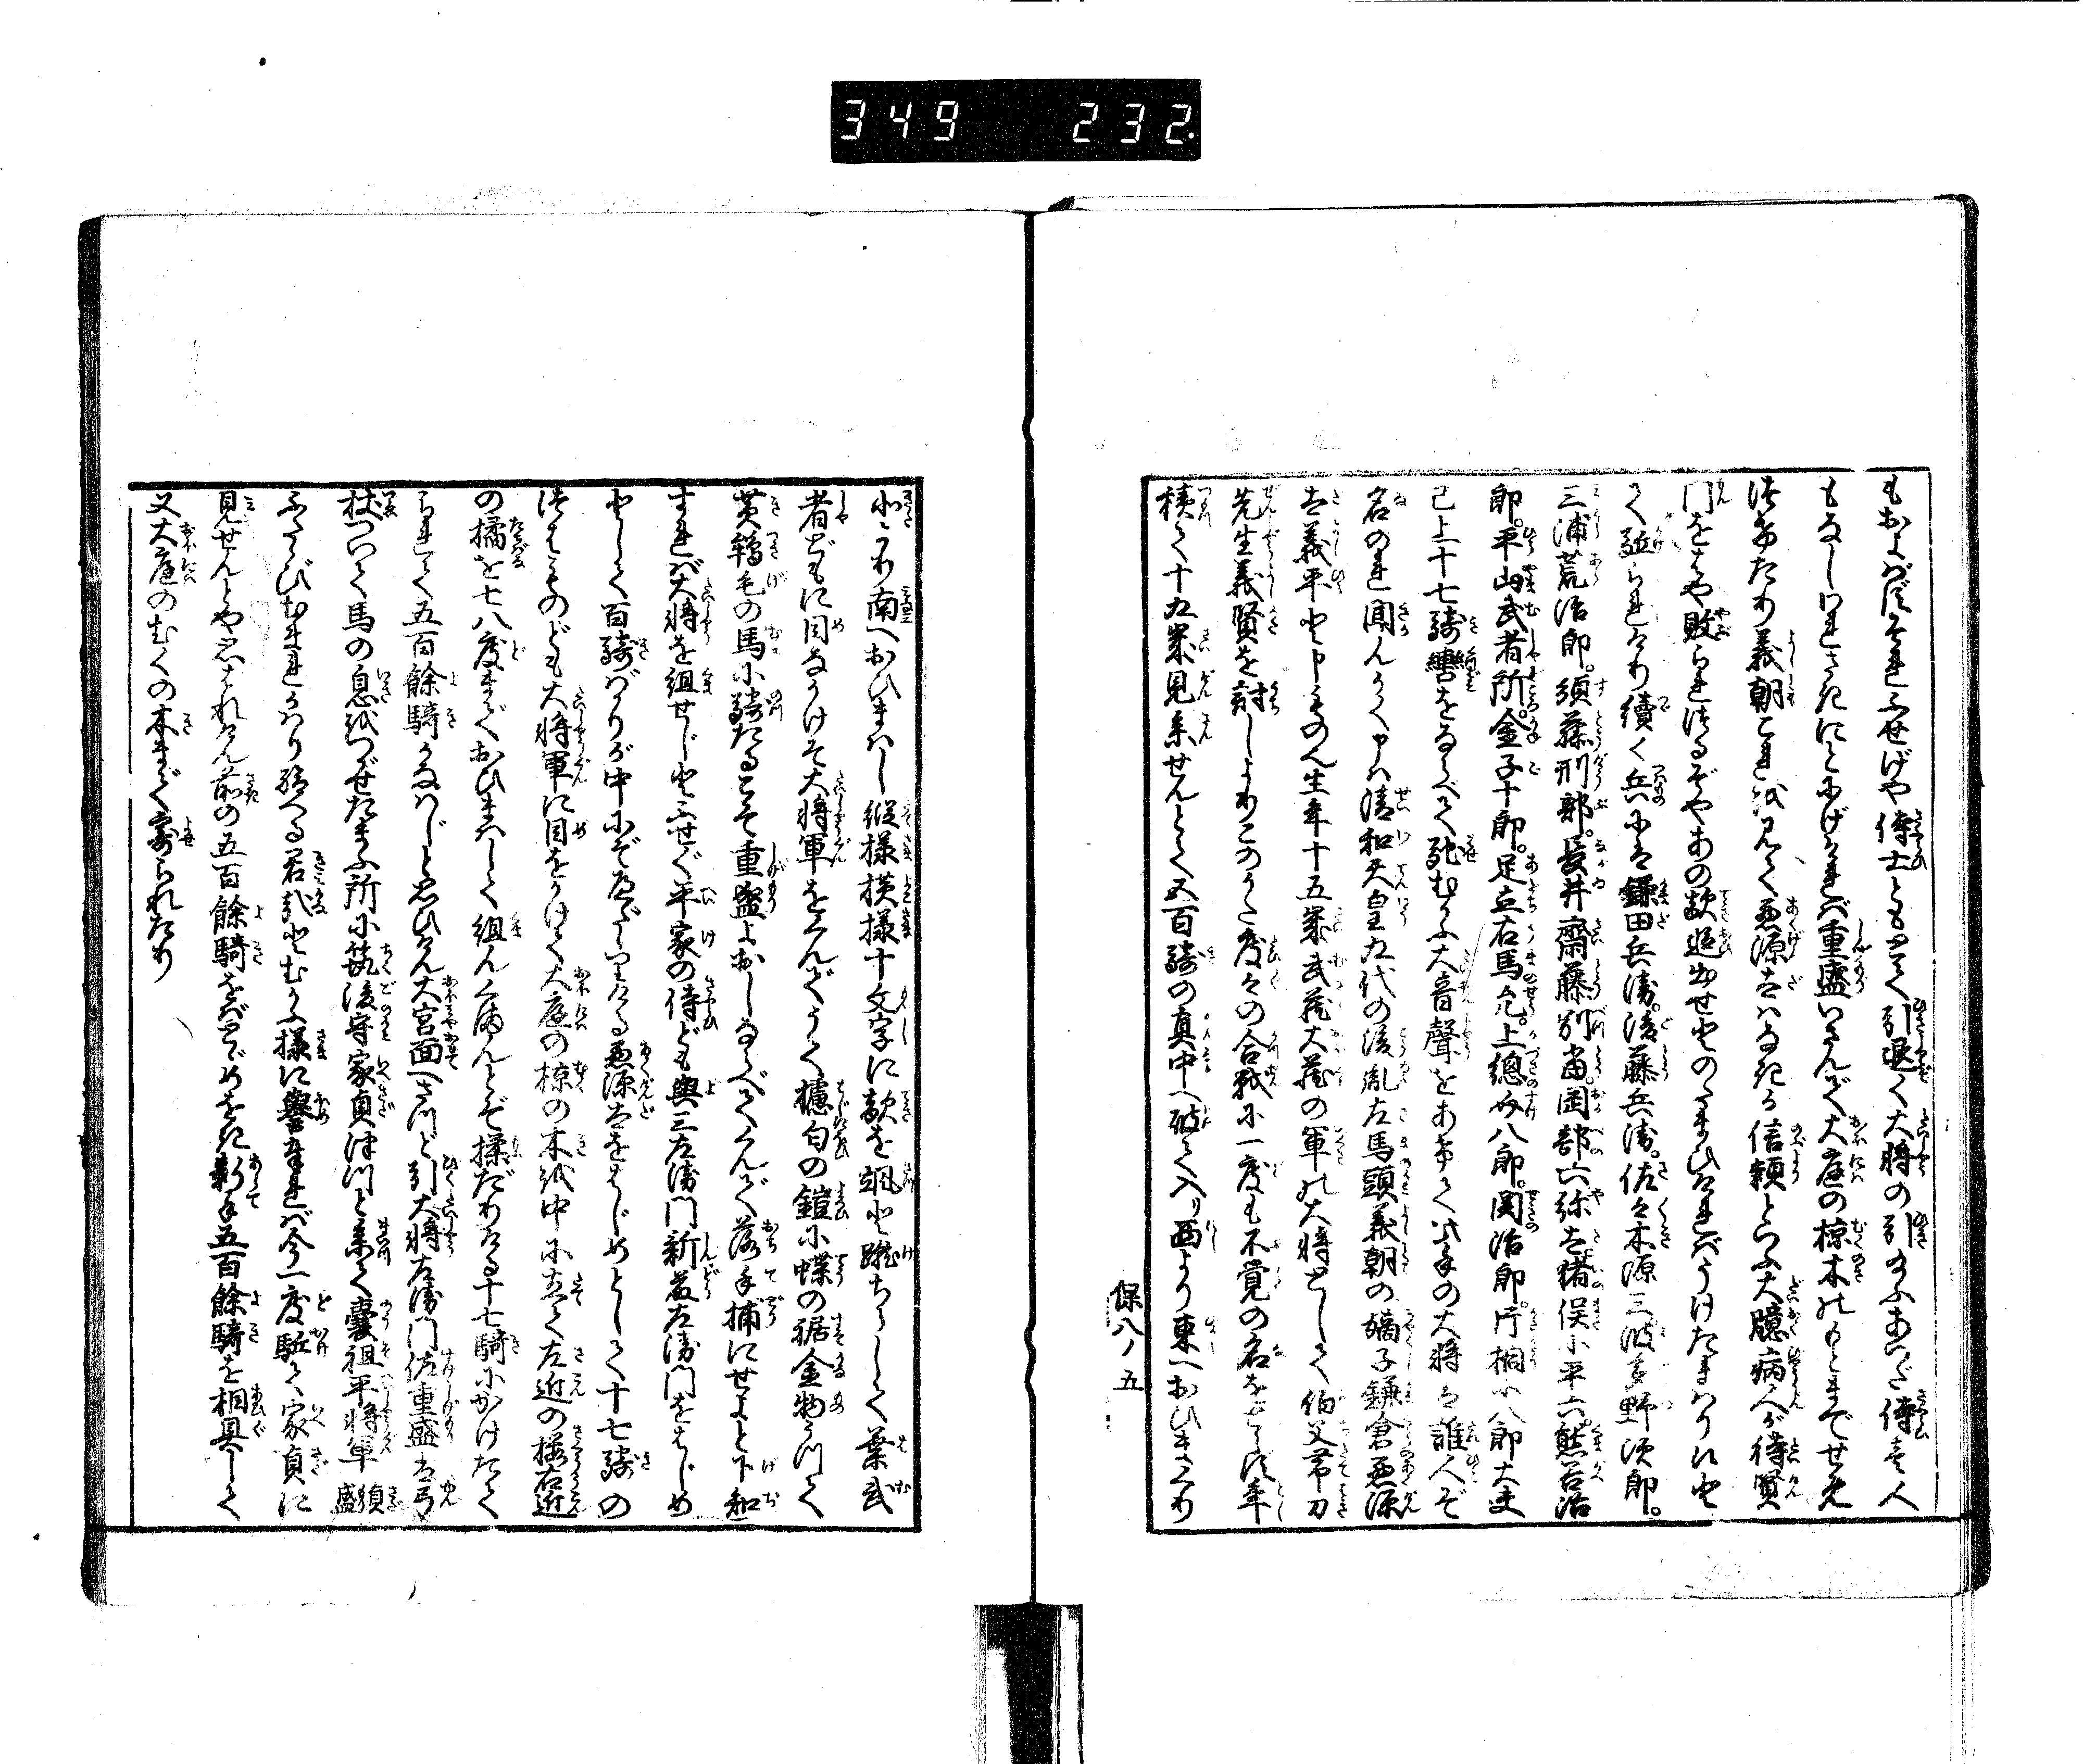 349 232
もおよばずそれふせげや侍士ともとて引退く大将の引給ふあひだ侍壱人
もなしわれさきにとにげければ重盛いさんで大庭の椋木のもとまでせめ
つけたり義朝これを見て悪源太はなきか信頼といふ大臆病人が待賢
門をはや破られつるぞやあの敵追出せとのたまひければうけたまはり候と
て駈られけり続く兵には鎌田兵衛。後藤兵衛。佐々木源三。波多野次郎。
三浦荒治郎。須藤刑部。長井齋藤別當。岡部六弥太。猪俣小平六。熊谷治
郎。平山武者所。金子十郎。足立右馬允。上總介八郎。関治郎。片桐小八郎大夫
已上十七騎轡をならべて馳むかふ大音聲をあげて此手の大将は誰人ぞ
名のれ聞んかく申は清和天皇九代の後胤左馬頭義朝の嫡子鎌倉悪源
太義平と申ものん生年十五歳武蔵大蔵の軍の大将として伯父帯刀
先生義賢を討しよりこのかた度々の合戦に一度も不覚の名をとらず年
積て十九歳見参せんとて五百騎の真中へ破て入り西より東へおひまくり
保八ノ五
北より南へおひまはし縦様横様十文字に敵を颯と蹴ちらして葉武
者どもに目なかけそ大将軍をくんでうて櫨匂の鎧に蝶の裾金物うつて
黄鴾毛の馬に騎たるこそ重盛よおしならべてくんで落手捕にせよと下知
すれば大将を組せじとふせぐ平家の侍ども與三左衛門新藤左衛門をはじめ
として百騎ばかりが中にぞへだゝりける悪源太をはじめとして十七騎の
つはものども大将軍に目をかけて大庭の椋の木を中に立て左近の桜右近
の橘を七八度までおひまはして組んくまんとぞ揉だりける十七騎にかけたて
られて五百餘騎かなはじと思ひけん大宮面へさつと引大将左衛門佐重盛は弓
杖つひて馬の息をつがせたまふ所に筑後守家貞津川と参て嚢祖平将軍
ふたゝびむまれかはり給へる君哉とむかふ様に譽ければ今一度駈て家貞に
見せんとや思はれけん前の五百餘騎をばとゞめをき新手五百餘騎を相具して
又大庭のむくの木まで寄られたり